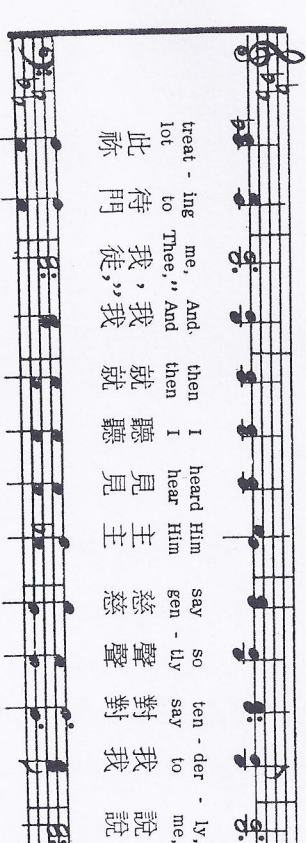 treat - ing me, And then I heard Him say so ten - der - ly,
lot to Thee," And then I hear Him gen - tly say to me,
此 待 我，我 就 聽 見 主 慈 聲 對 我 說
祢 門 徒，”我 就 聽 見 主 慈 聲 對 我 說